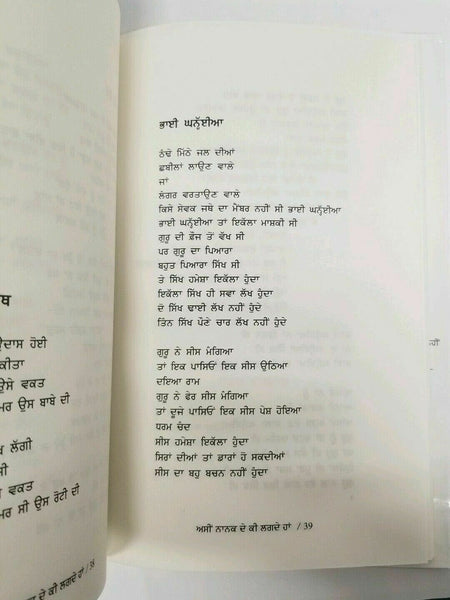 ਥ
ਉਦਾਸ ਹੋਈ
ਕੀਤਾ
ਉਸੇ ਵਕਤ
ਮਰ ਉਸ ਬਾਬੇ ਦੀ
ਲੱਗੀ
ਸੀ
ਵਕਤ
ਮਰ ਸੀ ਉਸ ਰੋਟੀ ਦੀ
ਦੇ ਕੀ ਲਗਦੇ ਹਾਂ / 38
ਭਾਈ ਘਨ੍ਹੱਈਆ
ਠੰਢੇ ਮਿੱਠੇ ਜਲ ਦੀਆਂ
ਛਬੀਲਾਂ ਲਾਉਣ ਵਾਲੇ
ਜਾਂ
ਲੰਗਰ ਵਰਤਾਉਣ ਵਾਲੇ
ਕਿਸੇ ਸੇਵਕ ਜਥੇ ਦਾ ਮੈਂਬਰ ਨਹੀਂ ਸੀ ਭਾਈ ਘਨ੍ਹੱਈਆ
ਭਾਈ ਘਨ੍ਹੱਈਆ ਤਾਂ ਇਕੱਲਾ ਮਾਸ਼ਕੀ ਸੀ
ਗੁਰੂ ਦੀ ਫ਼ੌਜ ਤੋਂ ਵੱਖ ਸੀ
ਪਰ ਗੁਰੂ ਦਾ ਪਿਆਰਾ
ਬਹੁਤ ਪਿਆਰਾ ਸਿੱਖ ਸੀ
ਤੇ ਸਿੱਖ ਹਮੇਸ਼ਾ ਇਕੱਲਾ ਹੁੰਦਾ
ਇਕੱਲਾ ਸਿੱਖ ਹੀ ਸਵਾ ਲੱਖ ਹੁੰਦਾ
ਦੋ ਸਿੱਖ ਢਾਈ ਲੱਖ ਨਹੀਂ ਹੁੰਦੇ
ਤਿੰਨ ਸਿੱਖ ਪੌਣੇ ਚਾਰ ਲੱਖ ਨਹੀਂ ਹੁੰਦੇ
ਗੁਰੂ ਨੇ ਸੀਸ ਮੰਗਿਆ
ਤਾਂ ਇਕ ਪਾਸਿਓਂ ਇਕ ਸੀਸ ਉਠਿਆ
ਦਇਆ ਰਾਮ
ਗੁਰੂ ਨੇ ਫੇਰ ਸੀਸ ਮੰਗਿਆ
ਤਾਂ ਦੂਜੇ ਪਾਸਿਓਂ ਇਕ ਸੀਸ ਪੇਸ਼ ਹੋਇਆ
ਧਰਮ ਚੰਦ
ਸੀਸ ਹਮੇਸ਼ਾ ਇਕੱਲਾ ਹੁੰਦਾ
ਸਿਰਾਂ ਦੀਆਂ ਤਾਂ ਡਾਰਾਂ ਹੋ ਸਕਦੀਆਂ
ਸੀਸ ਦਾ ਬਹੁ ਬਚਨ ਨਹੀਂ ਹੁੰਦਾ
ਅਸੀਂ ਨਾਨਕ ਦੇ ਕੀ ਲਗਦੇ ਹਾਂ / 39